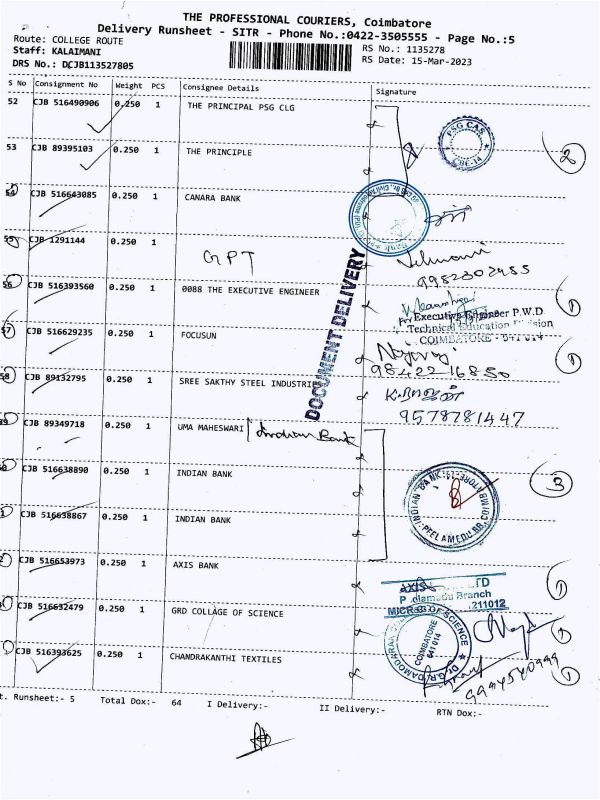 THE PROFESSIONAL COURIERS, Coimbatore
Delivery Runsheet - SITR - Phone No.:0422-3505555 - Page No.:5
Route: COLLEGE ROUTE
Staff: KALAIMANI
DRS No.: DCJB113527805
RS No.: 1135278
RS Date: 15-Mar-2023
S No Consignment No Weight PCS Consignee Details Signature
52 CJB 516490906 0.250 1 THE PRINCIPAL PSG CLG
PSG CAS
CBE-14
2
53 CJB 89395103 0.250 1 THE PRINCIPLE
54 CJB 516643085 0.250 1 CANARA BANK
55 CJB 1291144 0.250 1 GPT
Selvamani
9982302485
DOCUMENT DELIVERY
56 CJB 516393560 0.250 1 0088 THE EXECUTIVE ENGINEER
For Executive Engineer P.W.D.
Technical Education Division
COIMBATORE - 641 014
1
57 CJB 516629235 0.250 1 FOCUSUN
98422-16850
1
58 CJB 89132795 0.250 1 SREE SAKTHY STEEL INDUSTRIES
9578781447
59 CJB 89349718 0.250 1 UMA MAHESWARI Indian Bank
60 CJB 516638890 0.250 1 INDIAN BANK
INDIAN BANK
PEELAMEDU BR. COIMBATORE
3
CJB 516638867 0.250 1 INDIAN BANK
CJB 516653973 0.250 1 AXIS BANK
AXIS LTD
Peelamedu Branch
MICR 211012
1
CJB 516632479 0.250 1 GRD COLLAGE OF SCIENCE
Dr.G.R.DAMODARAN COLLEGE OF SCIENCE
COIMBATORE
641014
1
CJB 516393625 0.250 1 CHANDRAKANTHI TEXTILES
9994540999
1
t. Runsheet:- 5 Total Dox:- 64 I Delivery:- II Delivery:- RTN Dox:-